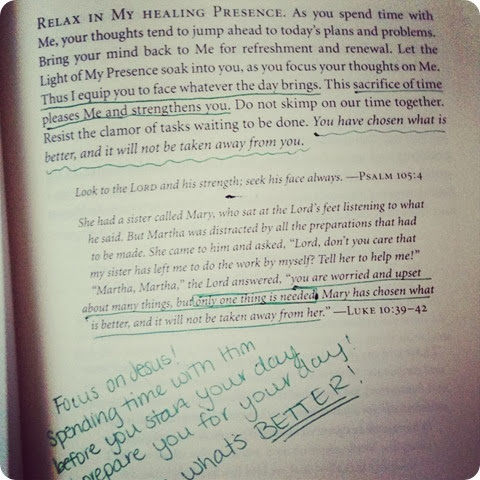 RELAX IN MY HEALING PRESENCE. As you spend time with
Me, your thoughts tend to jump ahead to today's plans and problems.
Bring your mind back to Me for refreshment and renewal. Let the
Light of My Presence soak into you, as you focus your thoughts on Me.
Thus I equip you to face whatever the day brings. This sacrifice of time
pleases Me and strengthens you. Do not skimp on our time together.
Resist the clamor of tasks waiting to be done. You have chosen what is
better, and it will not be taken away from you.
Look to the LORD and his strength; seek his face always. —PSALM 105:4
She had a sister called Mary, who sat at the Lord's feet listening to what
he said. But Martha was distracted by all the preparations that had
to be made. She came to him and asked, "Lord, don't you care that
my sister has left me to do the work by myself? Tell her to help me!"
"Martha, Martha," the Lord answered, "you are worried and upset
about many things, but only one thing is needed. Mary has chosen what
is better, and it will not be taken away from her." —LUKE 10:39–42
Focus on Jesus!
Spending time with Him
before you start your day
prepare you for your day!
whats BETTER!